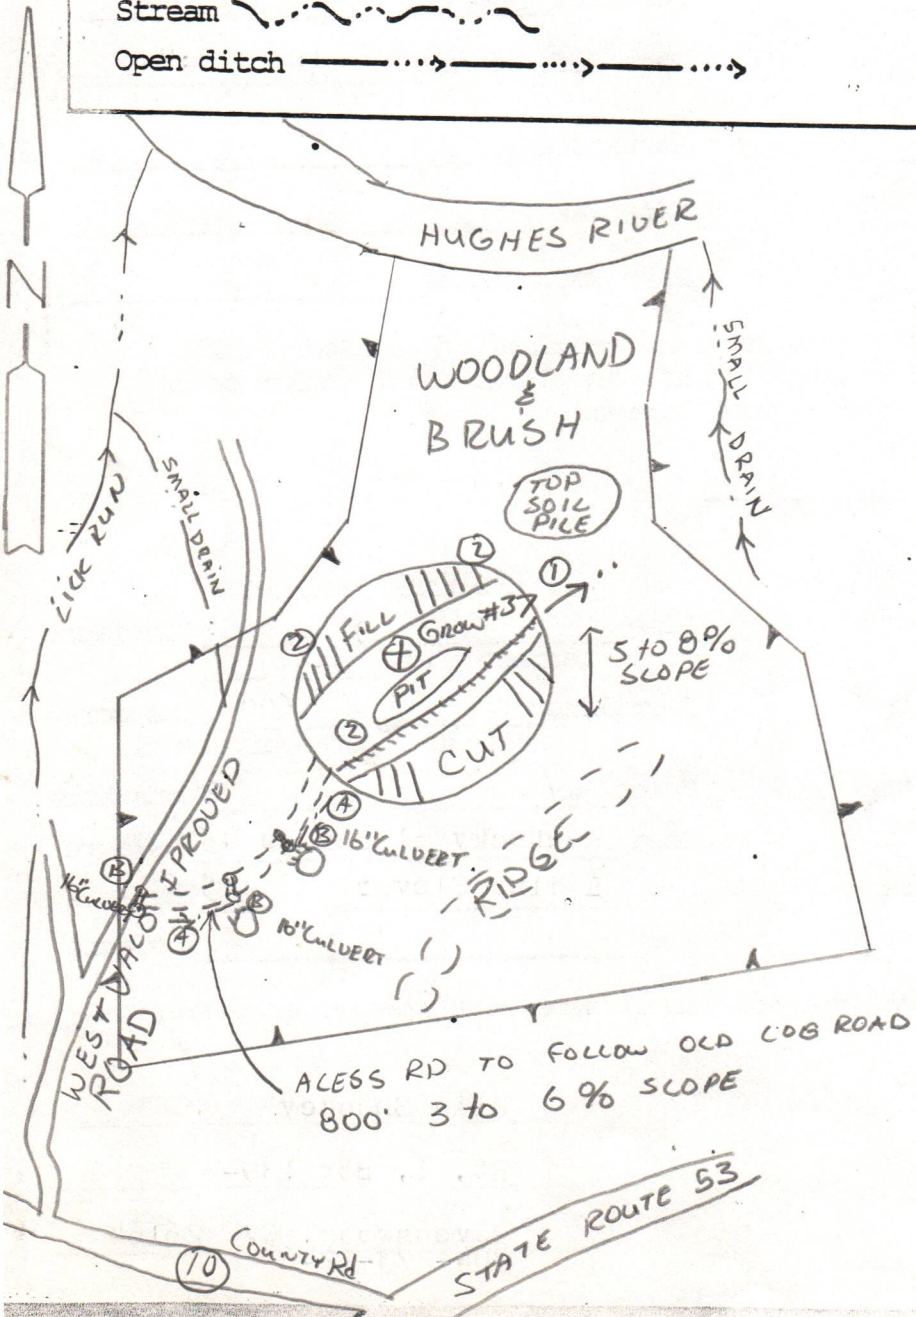 Stream
Open ditch
N
HUGHES RIVER
WOODLAND
&
BRUSH
SMALL DRAIN
TOP
SOIL
PILE
LICK RUN
SMALL DRAIN
2
1
2
FILL
GROW #37
PIT
2
CUT
5 to 8%
SLOPE
A
B 16" CULVERT
RIDGE
B
16" CULVERT
B
16" CULVERT
A
WEST VALO IPROVED
ROAD
ACESS RD TO FOLLOW OLD LOG ROAD
800' 3 to 6% SLOPE
COUNTY Rd
10
STATE ROUTE 53